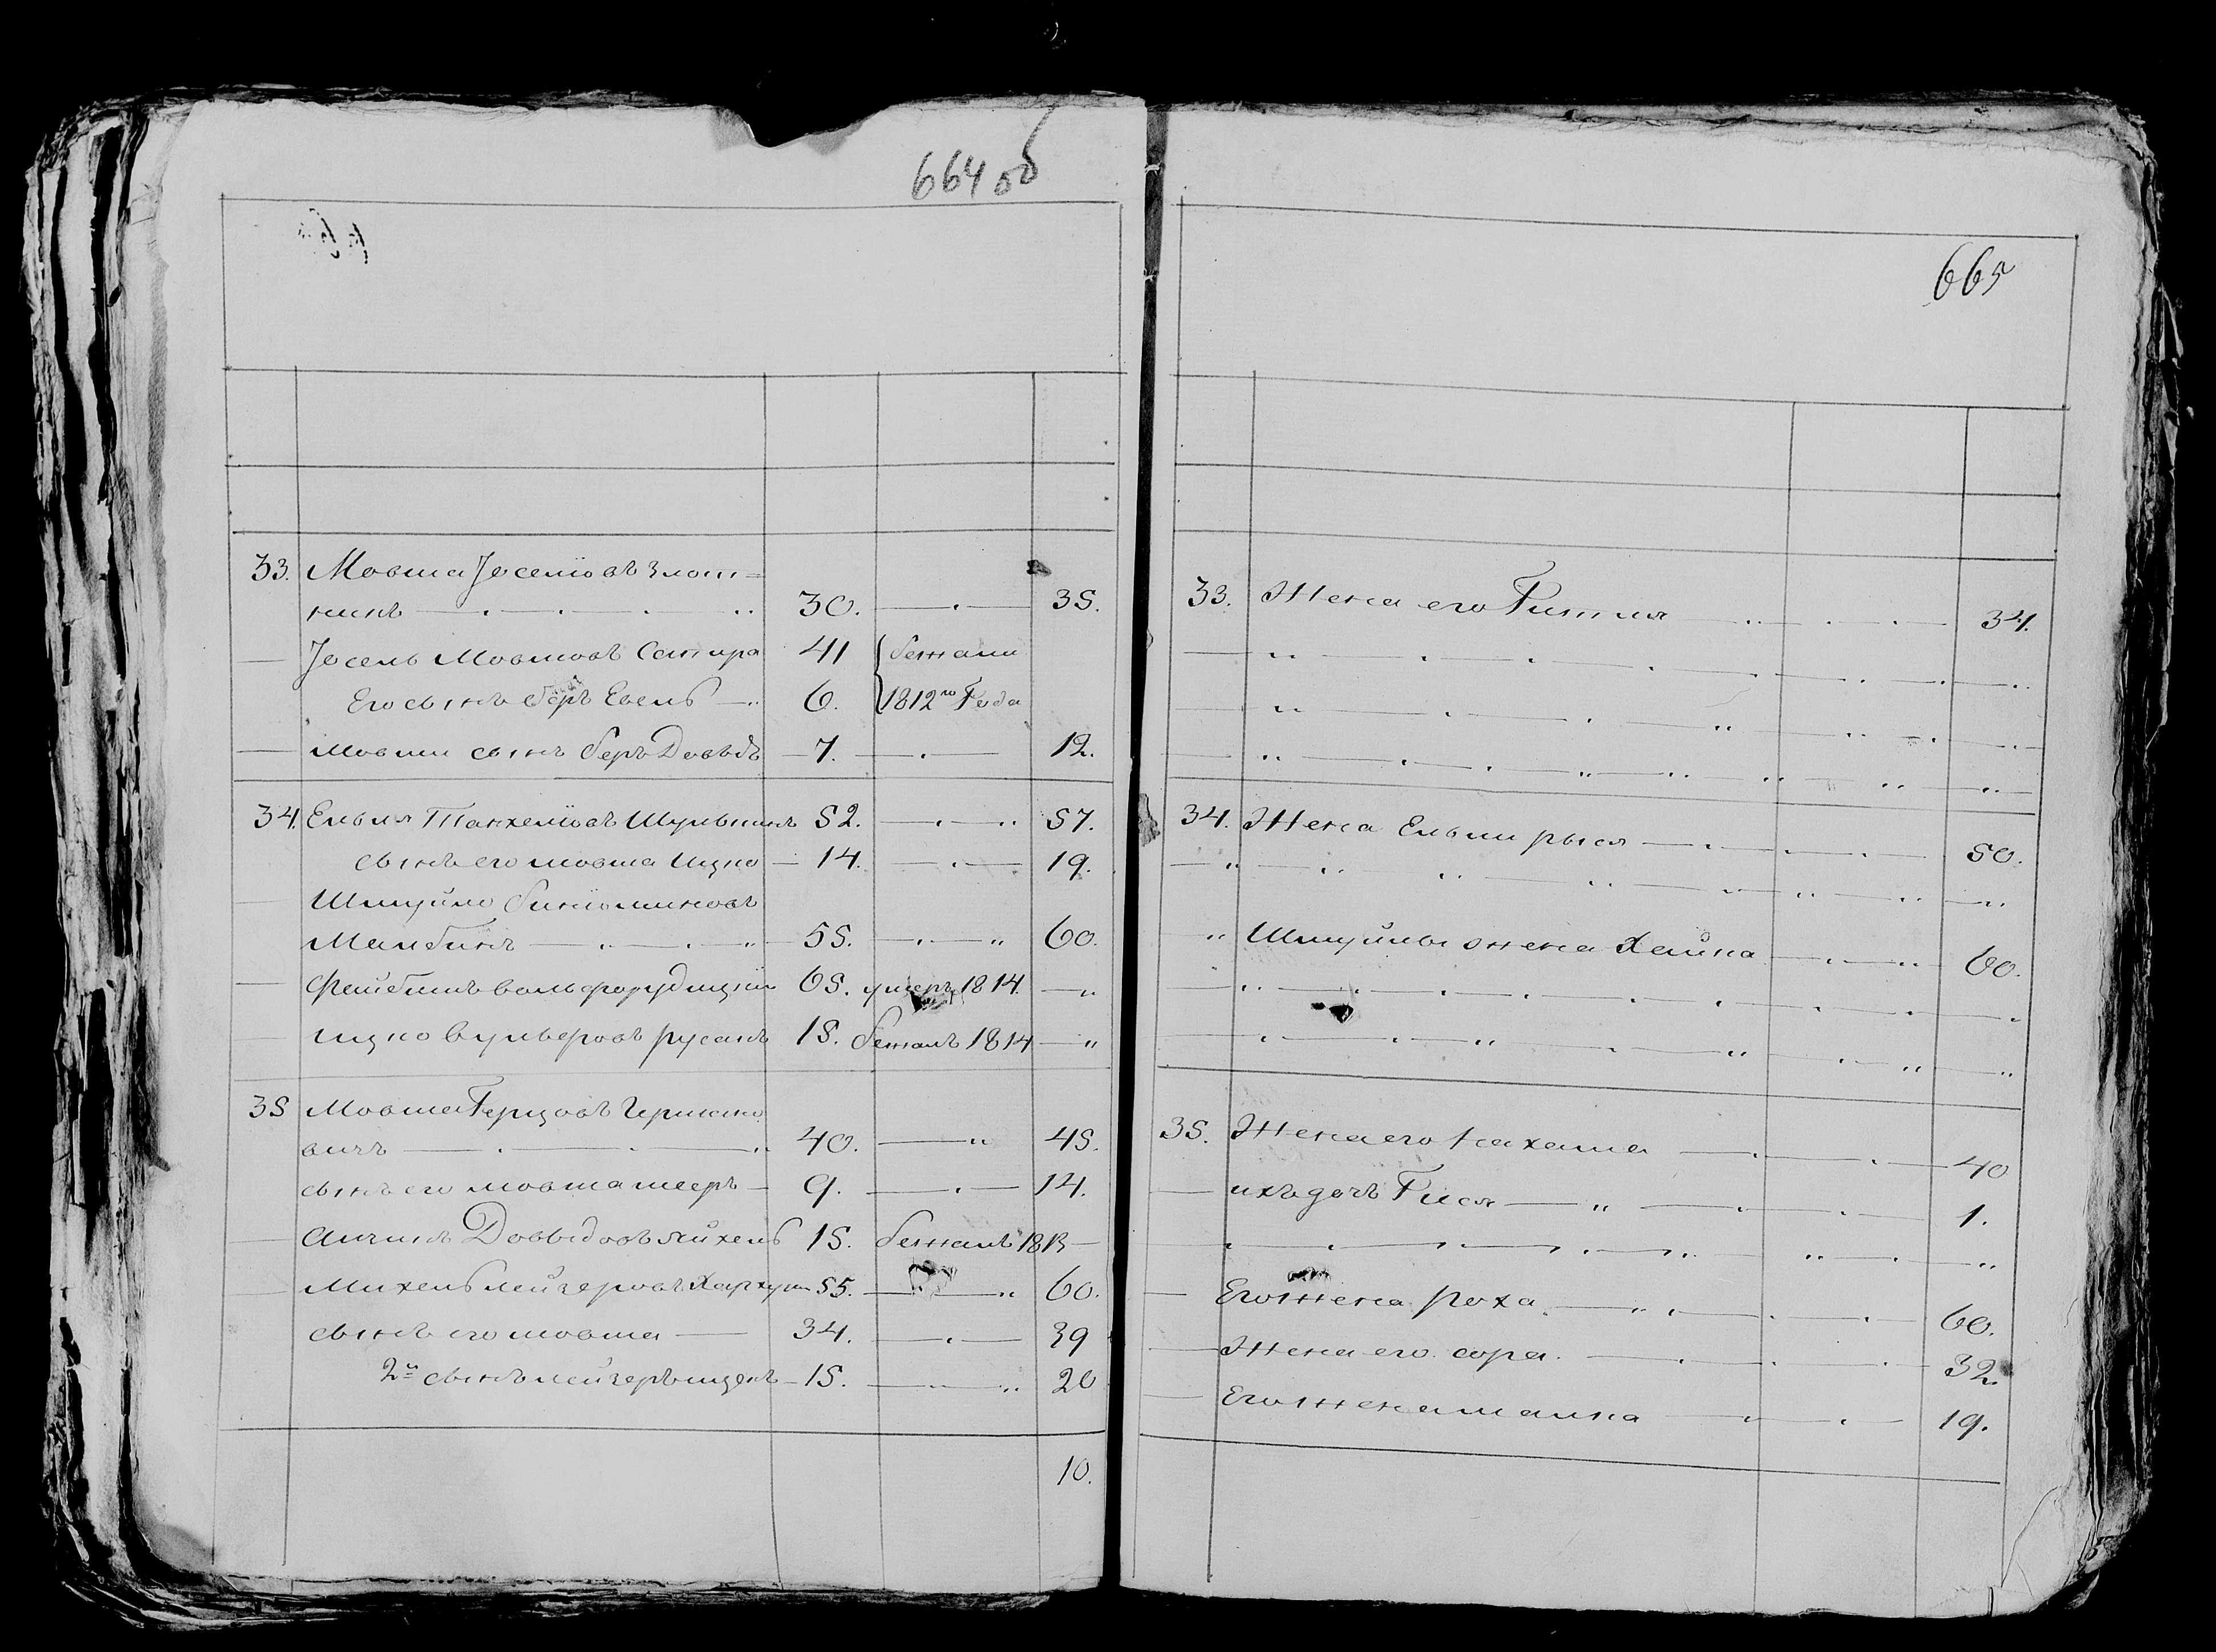 664 об
33. Мовша Іоселіовъ Злот=
никъ 30. 35.
Іосель Мовшовъ Сапира 41 бежали
Его сынъ беръ Евель 6. 1812го Года
Мовши сынъ беръ Довыдъ 7. 12.
34. Ельля Танхеліовъ Шулькинъ 52. 57.
сынъ его мовша Ицко 14. 19.
Шмуйло биніоминовъ
Малбинъ 55. 60.
Фейбишъ вольфорудицкій 65. умеръ 1814.
ицко вульверовъ русакъ 15. бежалъ 1814
35 Мовша Герцовъ Гершко
вичъ 40. 45.
сынъ его мовша мееръ 9. 14.
Довыдовъ 15. бежалъ 1813
Михель лейзеровъ 55. 60.
сынъ его мовша 34. 39
2й сынъ лейзеръ 15. 20
10.
665
33. Жена его Гитля 34.
34. Жена Ельи рыся 50.
Шмуйлы жена Хайка 60.
35. Жена его Нахама 40
ихъ дочъ Гися 1.
Его жена роха 60.
Жена его сора 32.
Его жена малка 19.